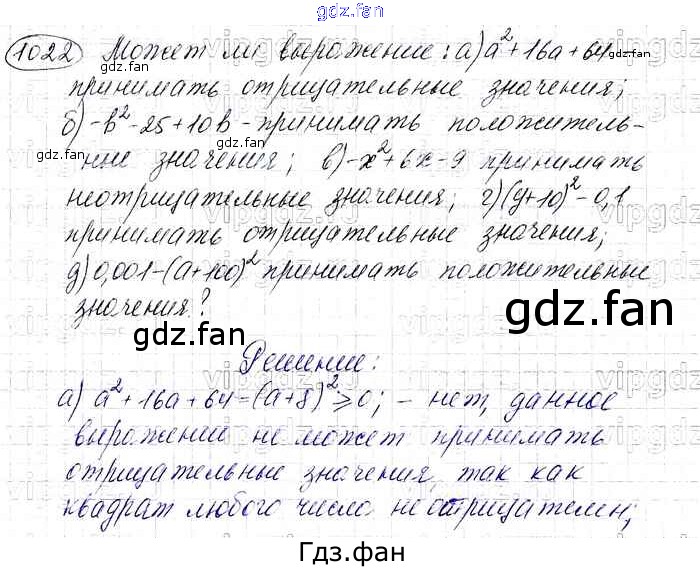 gdz.fan
1022 Может ли выражение: а) a²+16a+64
принимать отрицательные значения;
б) -b²-25+10b - принимать положитель-
ные значения; в) -x²+6x-9 принимать
неотрицательные значения; г) (y+10)²-0,1
принимать отрицательные значения;
д) 0,001-(a+100)² принимать положительные
значения?
gdz.fan
gdz.fan
Решение:
а) a²+16a+64=(a+8)²⩾0; - нет, данное
выражение не может принимать
отрицательные значения, так как
квадрат любого числа неотрицателен;
Гдз.фан